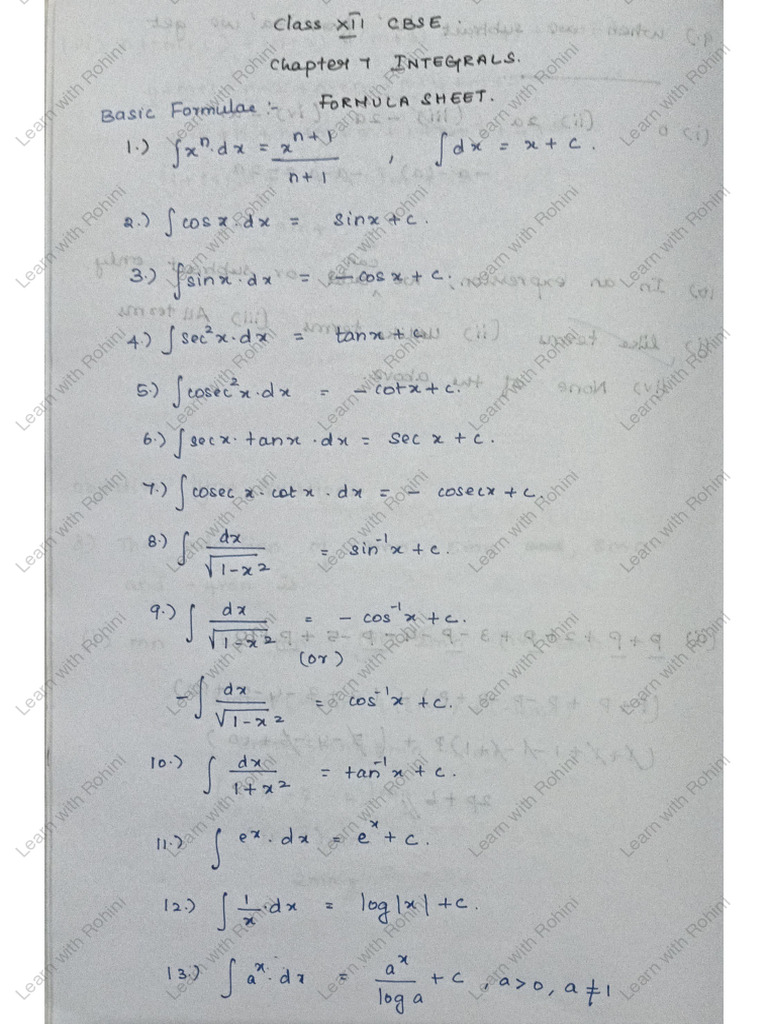 Class XII CBSE.
Chapter 7 INTEGRALS.
Basic Formulae :- FORMULA SHEET.
1.) ∫xⁿ·dx = xⁿ⁺¹/n+1 , ∫dx = x + c.
2.) ∫cos x·dx = sinx + c.
3.) ∫sinx·dx = -cosx + c.
4.) ∫sec²x·dx = tanx + c
5.) ∫cosec²x·dx = -cotx + c.
6.) ∫secx·tanx·dx = sec x + c.
7.) ∫cosec x·cot x·dx = - cosecx + c.
8.) ∫ dx/√1-x² = sin⁻¹x + c.
9.) ∫ dx/√1-x² = - cos⁻¹x + c.
(or)
-∫ dx/√1-x² = cos⁻¹x + c.
10.) ∫ dx/1+x² = tan⁻¹x + c.
11.) ∫ eˣ·dx = eˣ + c.
12.) ∫ 1/x·dx = log|x| + c.
13.) ∫ aˣ·dx = aˣ/log a + c , a>0, a≠1
Learn with Rohini